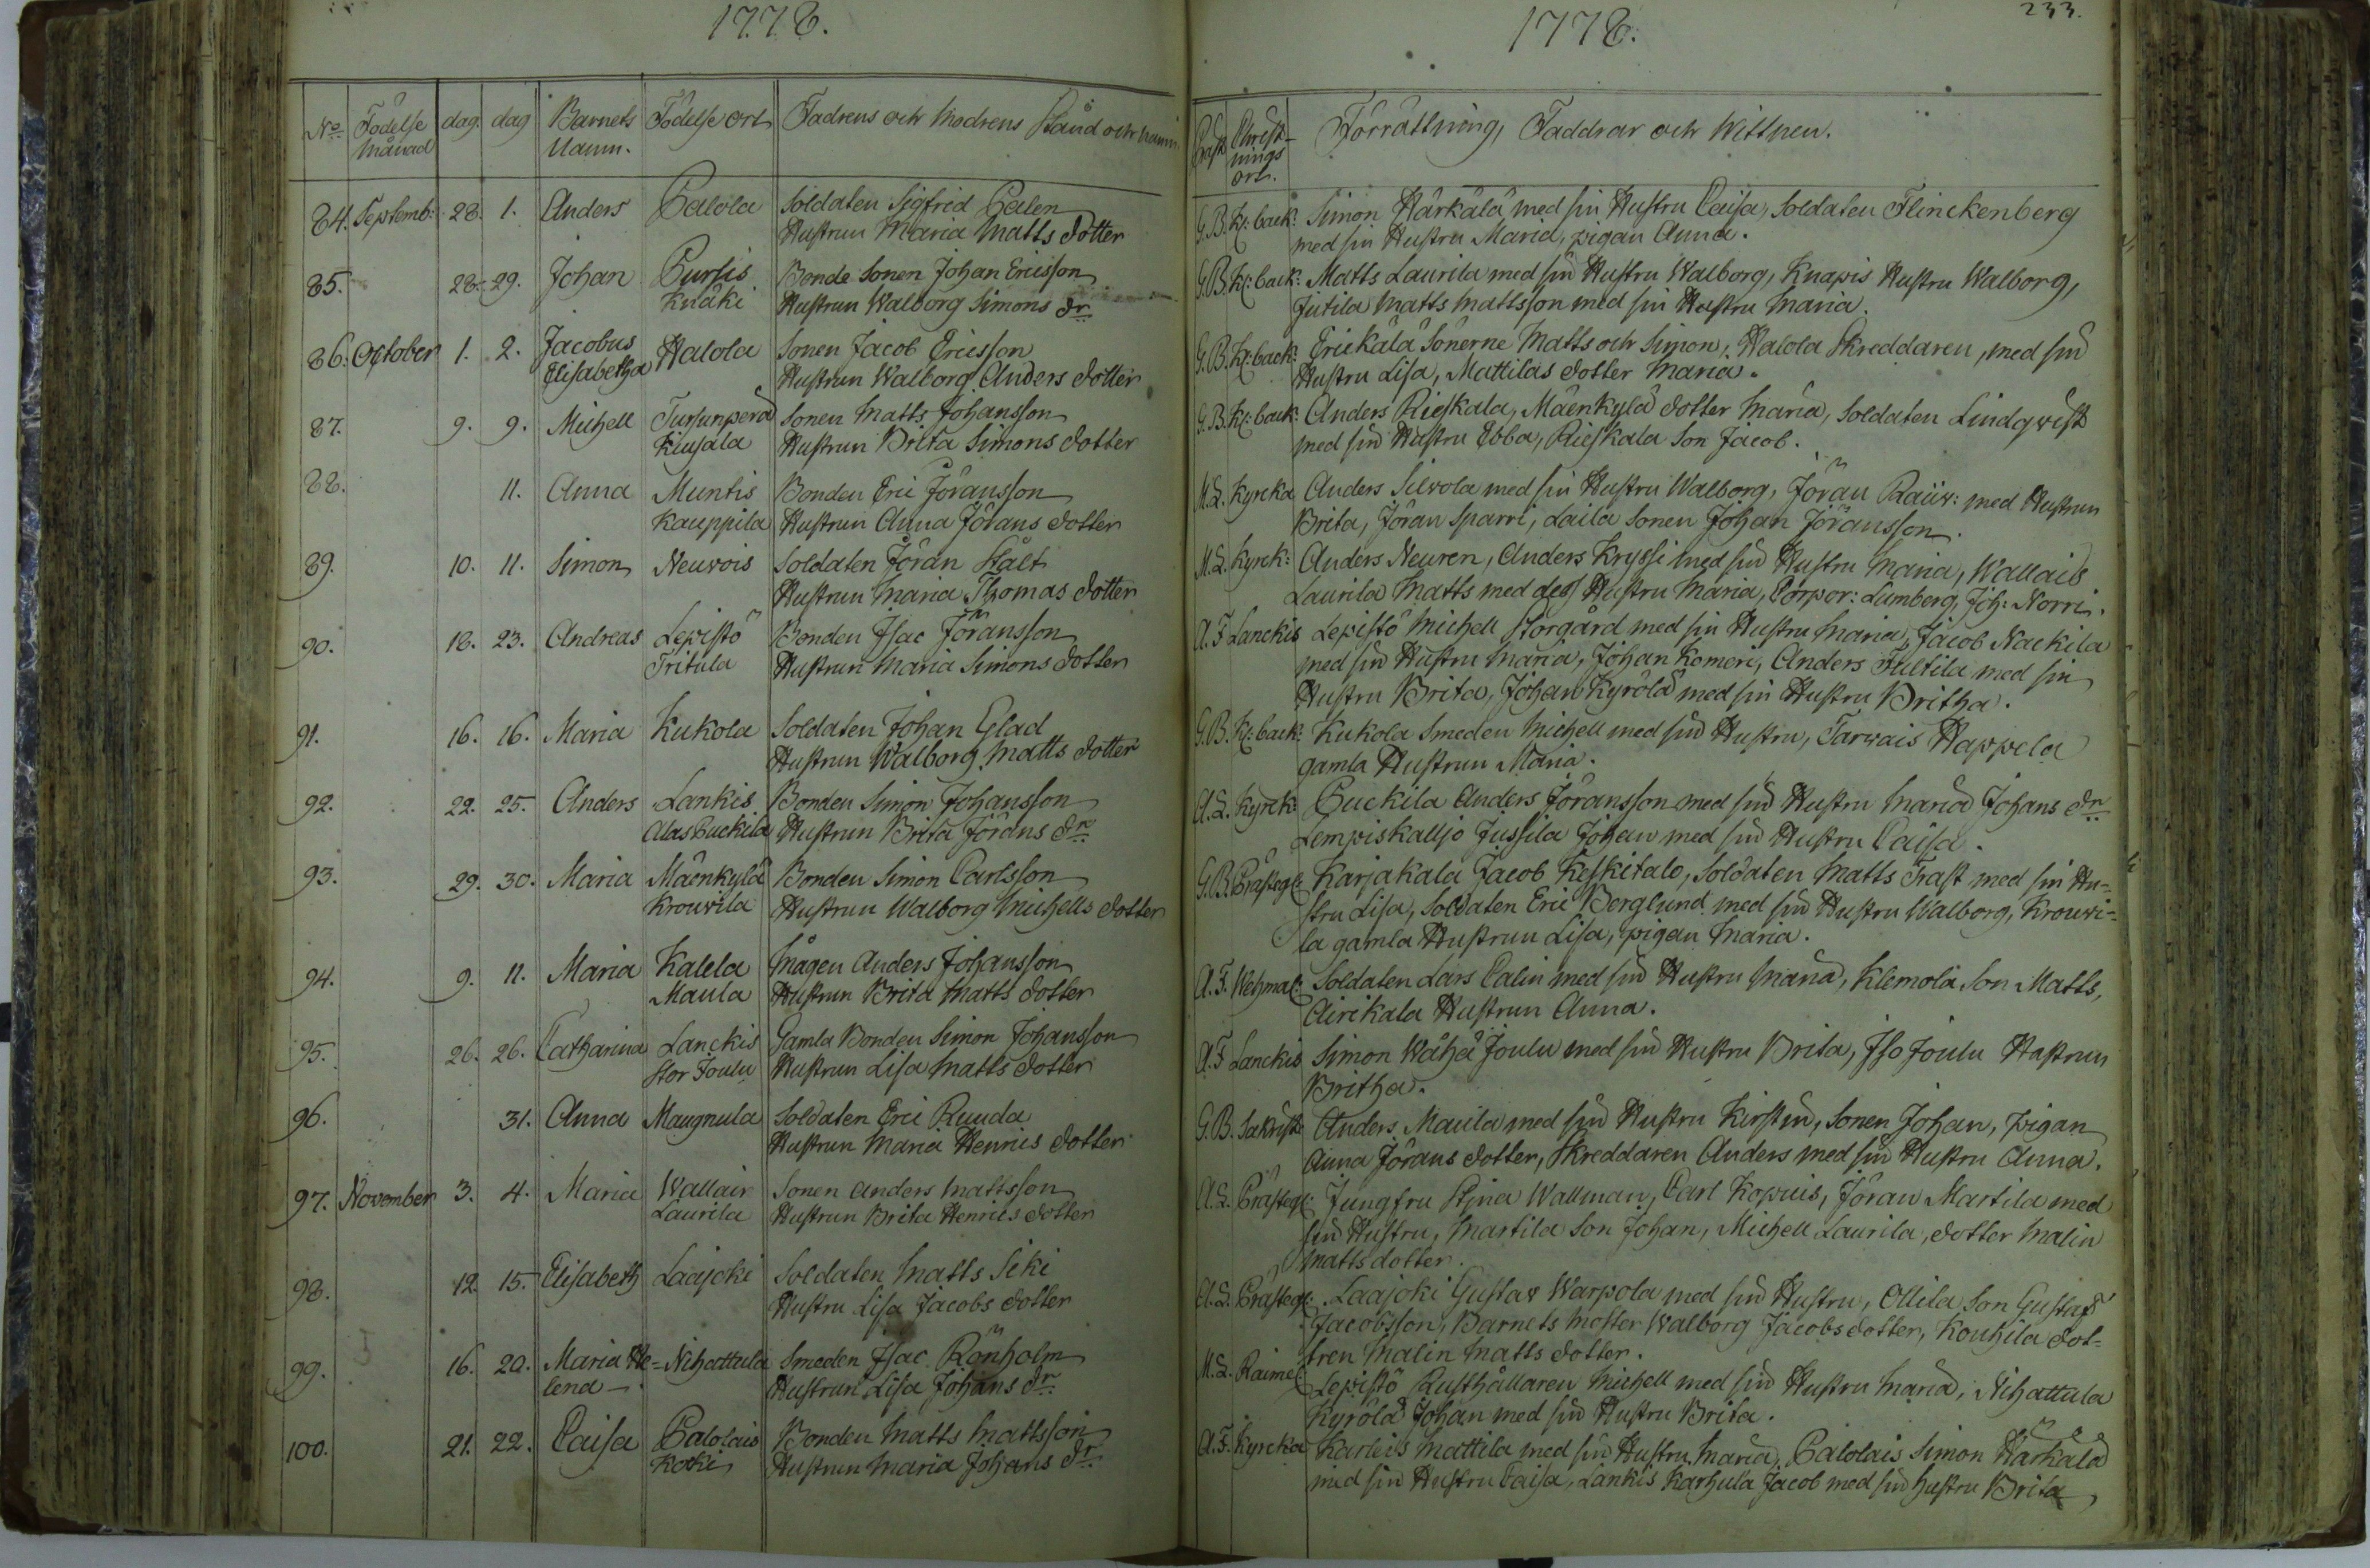 1778.
No Födelse månad dag. dag Barnets Namn. Födelse ort Fadrens och Modrens Stånd och namn
84. Septemb: 28. 1. Anders Palola Soldaten Sigfrid Palen
Hustrun Maria Matts dotter
85. 28. 29. Johan Pursis Bonde Sonen Johan Ericsson
Knäki Hustrun Walborg Simons dr
86. October 1. 2. Jacobus Halola Sonen Jacob Ericsson
Elisabetha Hustrun Walborg Anders dotter
87. 9. 9. Michell Tursunperä Sonen Matts Johansson
Kiusala Hustrun Brita Simons dotter
88. 11. Anna Muntis Bonden Eric Jöransson
Kauppila Hustrun Anna Jörans dotter
89. 10. 11. Simon Neuvois Soldaten Jöran Stålt
Hustrun Maria Thomas dotter
90. 18. 23. Andreas Lepistö Bonden Isac Jöransson
Tritula Hustrun Maria Simons dotter
91. 16. 16. Maria Kukola Soldaten Johan Glad
Hustrun Walborg Matts dotter
92. 22. 25. Anders Lankis Bonden Simon Johansson
Alas Puckila Hustrun Brita Jörans dr
93. 29. 30. Maria Mäenkylä Bonden Simon Carlsson
Krouvila Hustrun Walborg Michells dotter
94. 9. 11. Maria Kalela Mågen Anders Johansson
Maula Hustrun Brita Matts dotter
95. 26. 26. Catharina Lanckis Gamla Bonden Simon Johansson
Stor Joulu Hustrun Lisa Matts dotter
96. 31. Anna Maugnula Soldaten Eric Ruuda
Hustrun Maria Henrics dotter
97. November 3. 4. Maria Wallais Sonen Anders Mattsson
Laurila Hustrun Brita Henrics dotter
98. 12. 15. Elisabeth Laajoki Soldaten Matts Siki
Hustru Lisa Jacobs dotter
99. 16. 20. Maria He= Nihattula Smeden Isac Rönholm
lena Hustrun Lisa Johans dr
100. 21. 22. Caisa Palolais Bonden Matts Mattsson
Koki Hustrun Maria Johans dr
1778.
233.
Präst Christ-
nings
ort. Förrättning, Faddrar och Wittnen.
G.B. Kl: back: Simon Härkälä med sin Hustru Caisa, Soldaten Flinckenberg
med sin Hustru Maria, pigan Anna.
G.B. Kl: back: Matts Laurila med sin Hustru Walborg, Knapis Hustru Walborg,
Jutila Matts Mattsson med sin Hustru Maria.
G.B. Kl: back: Erickälä Sönerne Matts och Simon, Halola Skreddaren, med sin
Hustru Lisa, Mattilas dotter Maria.
G.B. Kl: back: Anders Rieskala, Mäenkylä dotter Maria, Soldaten Lindqvist
med sin Hustru Ebba, Rieskala Son Jacob.
M.L. Kyrcka Anders Silvola med sin Hustru Walborg, Jöran med Hustrun
Brita, Jöran Sparri, Laila Sonen Johan Jöransson.
M.L. Kyrck: Anders Neuren, Anders Kryssi med sin Hustru Maria, Wallais
Laurila Matts med dess Hustru Maria, Corpor: Lumberg, Joh: Norri.
A.F. Lanckis Lepistö Michell Storgård med sin Hustru Maria, Jacob Nackila
med sin Hustru Maria, Johan Komeri, Anders Tultila med sin
Hustru Brita, Johan Kyrölä med sin Hustru Britha.
G.B. Kl: back: Kukola Smeden Michell med sin Hustru, Tarvais Happola
gamla Hustrun Maria.
A.L. Kyrck: Puckila Anders Jöransson med sin Hustru Maria Johans dr
Lempiskallio Jussila Johan med sin Hustru Caisa.
G.B. Prästeg: Karjakala Jacob Keskitalo, Soldaten Matts Trast med sin Hu=
stru Lisa, Soldaten Eric Berglund med sin Hustru Walborg, Krouvi=
la gamla Hustrun Lisa, pigan Maria.
A.F. Wehmal: Soldaten Lars Palin med sin Hustru Maria, Klemola Son Matts,
Airikala Hustrun Anna.
A.F. Lanckis Simon Wähä Joulu med sin Hustru Brita, Iso Joulu Hustrun
Britha.
G.B. Sakrist: Anders Maula med sin Hustru Kirstin, Sonen Johan, pigan
Anna Jörans dotter, Skreddaren Anders med sin Hustru Anna.
A.L. Prästeg: Jungfru Stina Wallman, Carl Kopuis, Jöran Martila med
sin Hustru, Martila Son Johan, Michell Laurila, dotter Malin
Matts dotter.
A.L. Prästeg: Laajoki Gustav Warpola med sin Hustru, Ollila Son Gustaf
Jacobsson, Barnets Moster Walborg Jacobs dotter, Kouhila dot=
tren Malin Matts dotter.
M.L. Raimel: Lepistö Rusthållaren Michell med sin Hustru Maria, Nihattula
Kyrölä Johan med sin Hustru Brita.
A.F. Kyrcka Karleis Mattila med sin Hustru Maria, Palolais Simon Härkälä
med sin Hustru Caisa, Lankis Karhula Jacob med sin hustru Brita